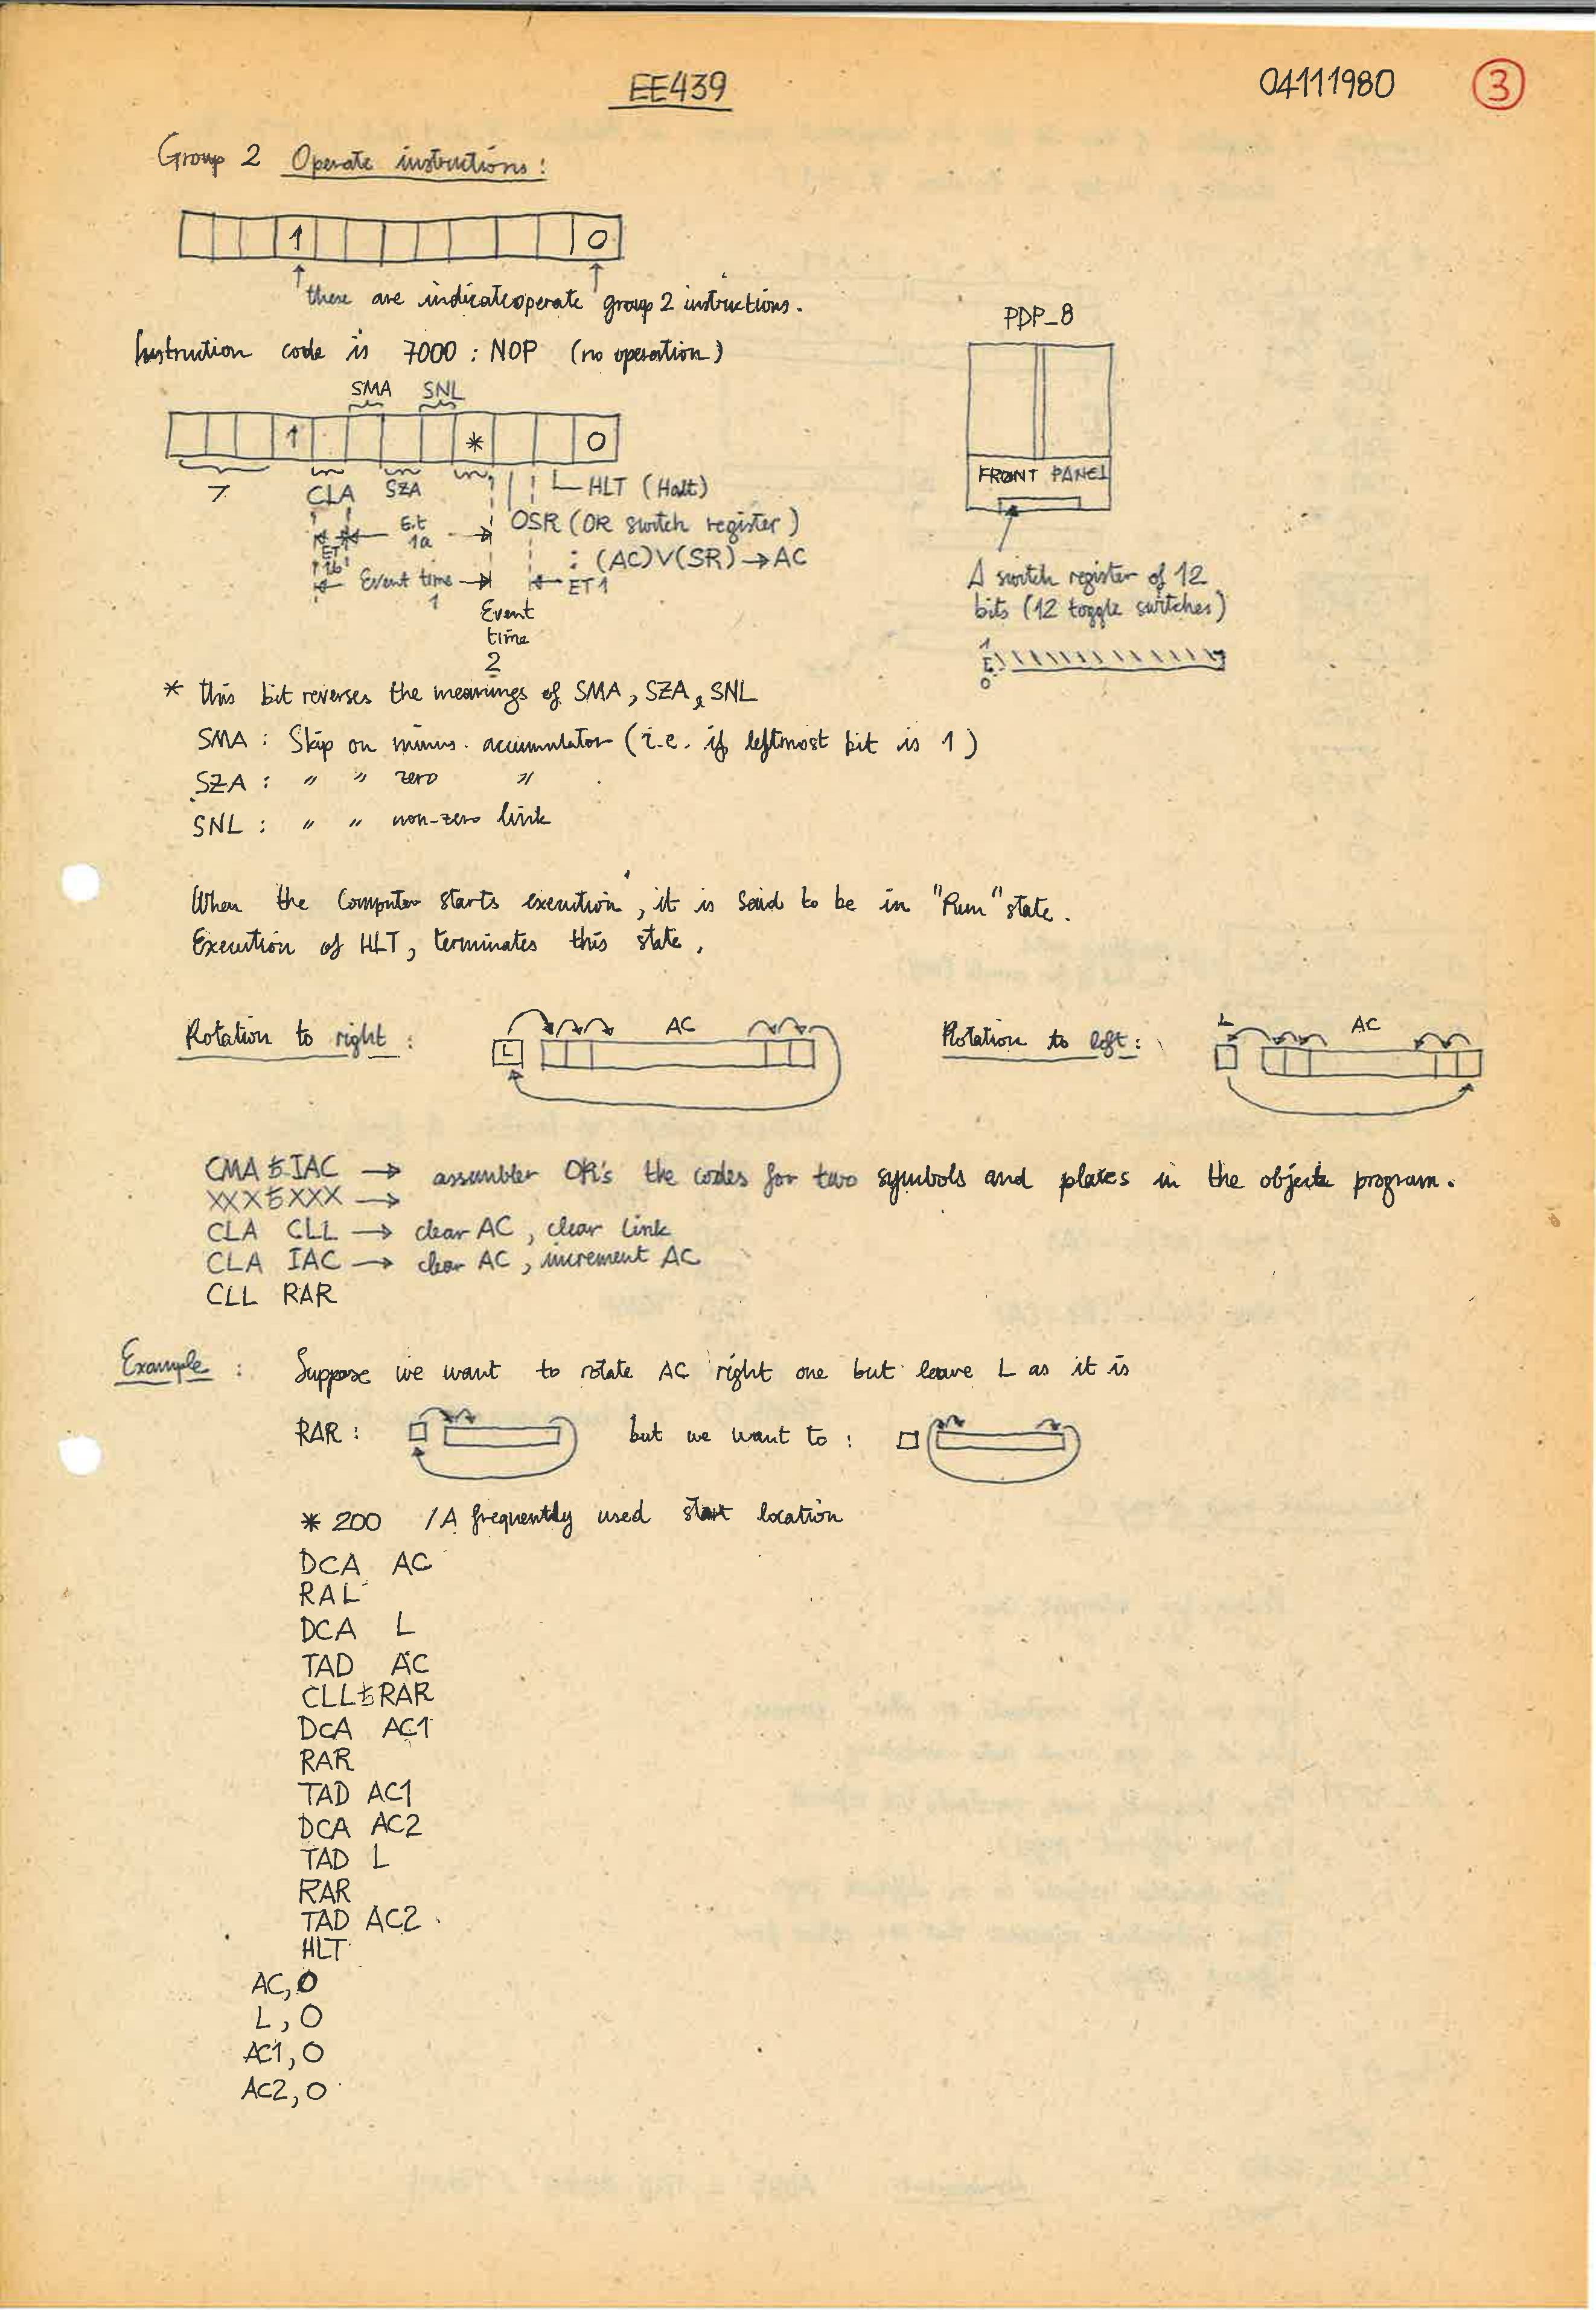 EE439
04111980
3
Group 2 Operate instructions:
1 0
these are indicate operate group 2 instructions.
Instruction code is 7000 : NOP (no operation)
PDP_8
FRONT PANEL
A switch register of 12
bits (12 toggle switches)
1
0
SMA SNL
1 * 0
7 CLA SZA HLT (Halt)
E.t
1a
OSR (OR switch register)
: (AC)V(SR)→AC
ET
1b
Event time
1
ET1
Event
time
2
* this bit reverses the meanings of SMA, SZA, SNL
SMA : Skip on minus. accumulator (i.e. if leftmost bit is 1)
SZA : " " zero "
SNL : " " non-zero link
When the Computer starts execution, it is said to be in "Run" state.
Execution of HLT, terminates this state,
Rotation to right : L AC
Rotation to left : L AC
CMA ƀ IAC → assembler OR's the codes for two symbols and places in the objecte program.
XXXƀXXX →
CLA CLL → clear AC, clear link
CLA IAC → clear AC, increment AC
CLL RAR
Example : Suppose we want to rotate AC right one but leave L as it is
RAR : but we want to :
* 200 /A frequently used start location
DCA AC
RAL
DCA L
TAD AC
CLLƀRAR
DCA AC1
RAR
TAD AC1
DCA AC2
TAD L
RAR
TAD AC2
HLT
AC,0
L,0
AC1,0
AC2,0